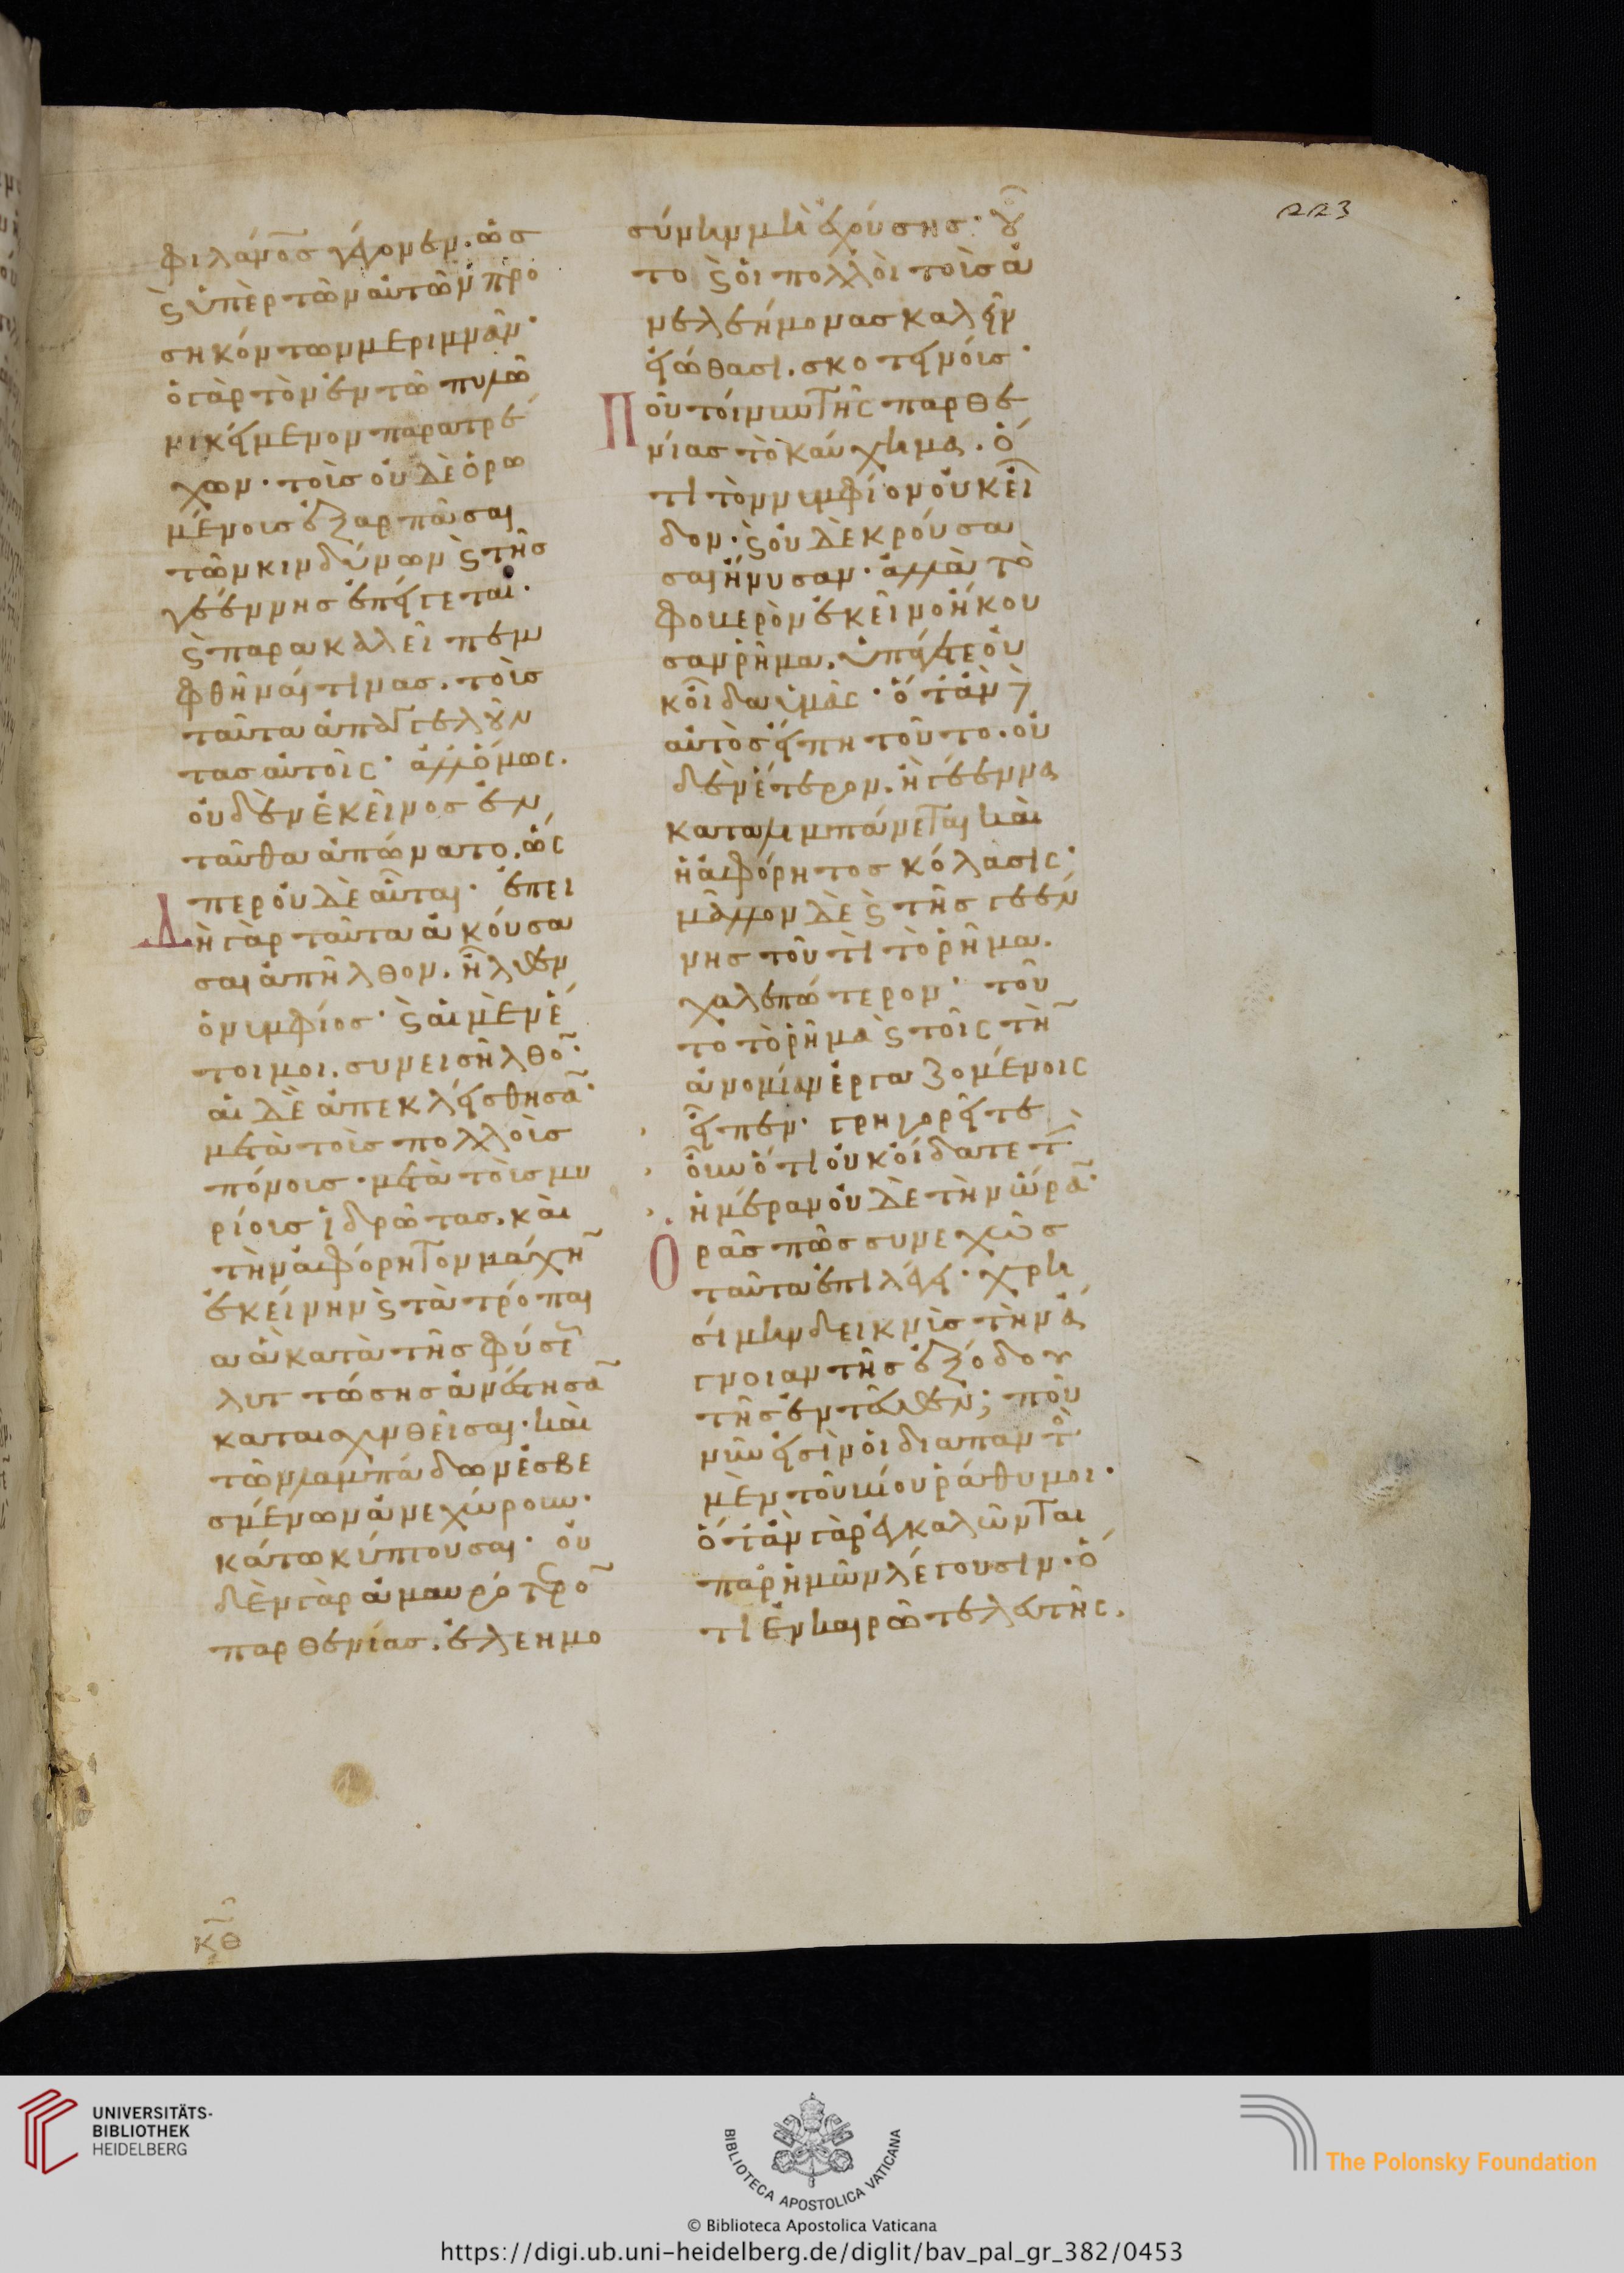 φιλάνο̅ς γένομεν. ὡς
ϛ ὑπὲρ τῶν αὐτῶν προ
σηκόντων μεριμνᾶν·
ὁ γὰρ τὸν ἐν τῶ πυλῶ
νι κείμενον παρατρέ
χων· τοῖς οὐδὲ ὁρω
μένοις ἐξαρπάσαι
τῶν κινδύνων ϛ τῆς
γεέννης ἐπείγεται·
ϛ παρακαλεῖ πεμ
φθῆναί τινας. τοῖς
ταῦτα ἀπαγγελοῦν
τας αὐτοῖς· ἀλλόμως.
οὐδὲν ἐκεῖνος ἐν
ταῦθα ἀπώνατο. ὥς
περ οὐδὲ αὗται· ἐπει
Δὴ γὰρ ταῦτα ἀκούσα
σαι ἀπῆλθον. ἦλθεν
ὁ νυμφίος· ϛ αἱ μὲν ἕ
τοιμοι. συνεισῆλθο̅·
αἱ δὲ ἀπεκλείσθησα̅·
μετὰ τοῖς πολλοῖς
πόνοις· μετὰ τοῖς μυ
ρίοις ἱδρῶτας. καὶ
τὴν ἀφόρητον μάχη̅
ἐκείνην ϛ τὰ τρόπαι
α ἃ κατὰ τῆς φύσε̅
λυττώσης ἀνέστησα̅
καταισχυνθεῖσαι· καὶ
τῶν λαμπάδων ἐσβε
σμένων ἀνεχώρουν·
κάτω κύπτουσαι· οὐ
δὲν γὰρ ἀμαυρότερο̅
παρθενίας. ἐλεημο
σύνην μὴ ἐχούσης· οὕ
το ϛ οἱ πολλοὶ τοῖς ἀ
νελεήμονας καλεῖν
εἰώθασι. σκοτεινοῖς·
Ποῦ τοίνυν τῆς παρθε
νίας τὸ καύχημα. ὅ
τι τὸν νυμφίον οὐκ εἶ
δον· ϛ οὐδὲ κρούσα
σαι ἤνυσαν· ἀλλὰ τὸ
φοβερὸν ἐκεῖνο ἤκου
σαν ῥῆμα. ὑπάγετε οὐ
κ οἶδα ὑμᾶς· ὅταν δὲ
αὐτὸς εἴπη τοῦτο. οὐ
δὲν ἕτερον. ἢ γέεννα
καταλιμπάνεται καὶ
ἡ ἀφόρητος κόλασις·
μᾶλλον δὲ ϛ τῆς γεέν
νης τοῦτι τὸ ῥῆμα.
χαλεπώτερον· τοῦ
το τὸ ῥῆμα ϛ τοῖς τη̅
ἀνομίαν ἐργαζομένοις
εἶπεν· γρηγορεῖτε
οὖν ὅτι οὐκ οἴδατε τὴ̅
ἡμέραν οὐδὲ τὴν ὥρα̅·
Ορᾶς πῶς συνεχῶς
ταῦτα ἐπιλέγει· χρη
σίμην δεικνὺς τὴν ἄ
γνοιαν τῆς ἐξόδου
τῆς ἐντεῦθεν; ποῦ
νῦν εἰσὶν οἱ διαπαντὸς
μὲν τοῦ βίου ῥάθυμοι·
ὅταν γὰρ ἐγκαλῶνται
παρ ἡμῶν λέγουσιν· ὅ
τι ἐν καιρῶ τελευτῆς.
κθ
223
UNIVERSITÄTS-
BIBLIOTHEK
HEIDELBERG
BIBLIOTECA APOSTOLICA VATICANA
The Polonsky Foundation
© Biblioteca Apostolica Vaticana
https://digi.ub.uni-heidelberg.de/diglit/bav_pal_gr_382/0453